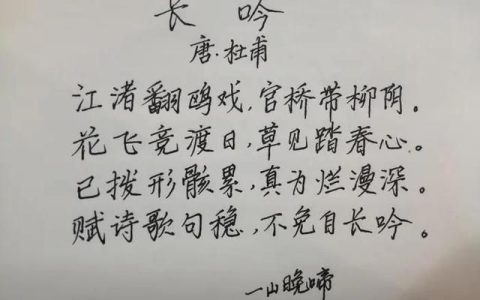 长吟
唐·杜甫
江渚翻鸥戏,官桥带柳阴。
花飞竞渡日,草见踏春心。
已拨形骸累,真为烂漫深。
赋诗歌句稳,不免自长吟。
一山晚啼